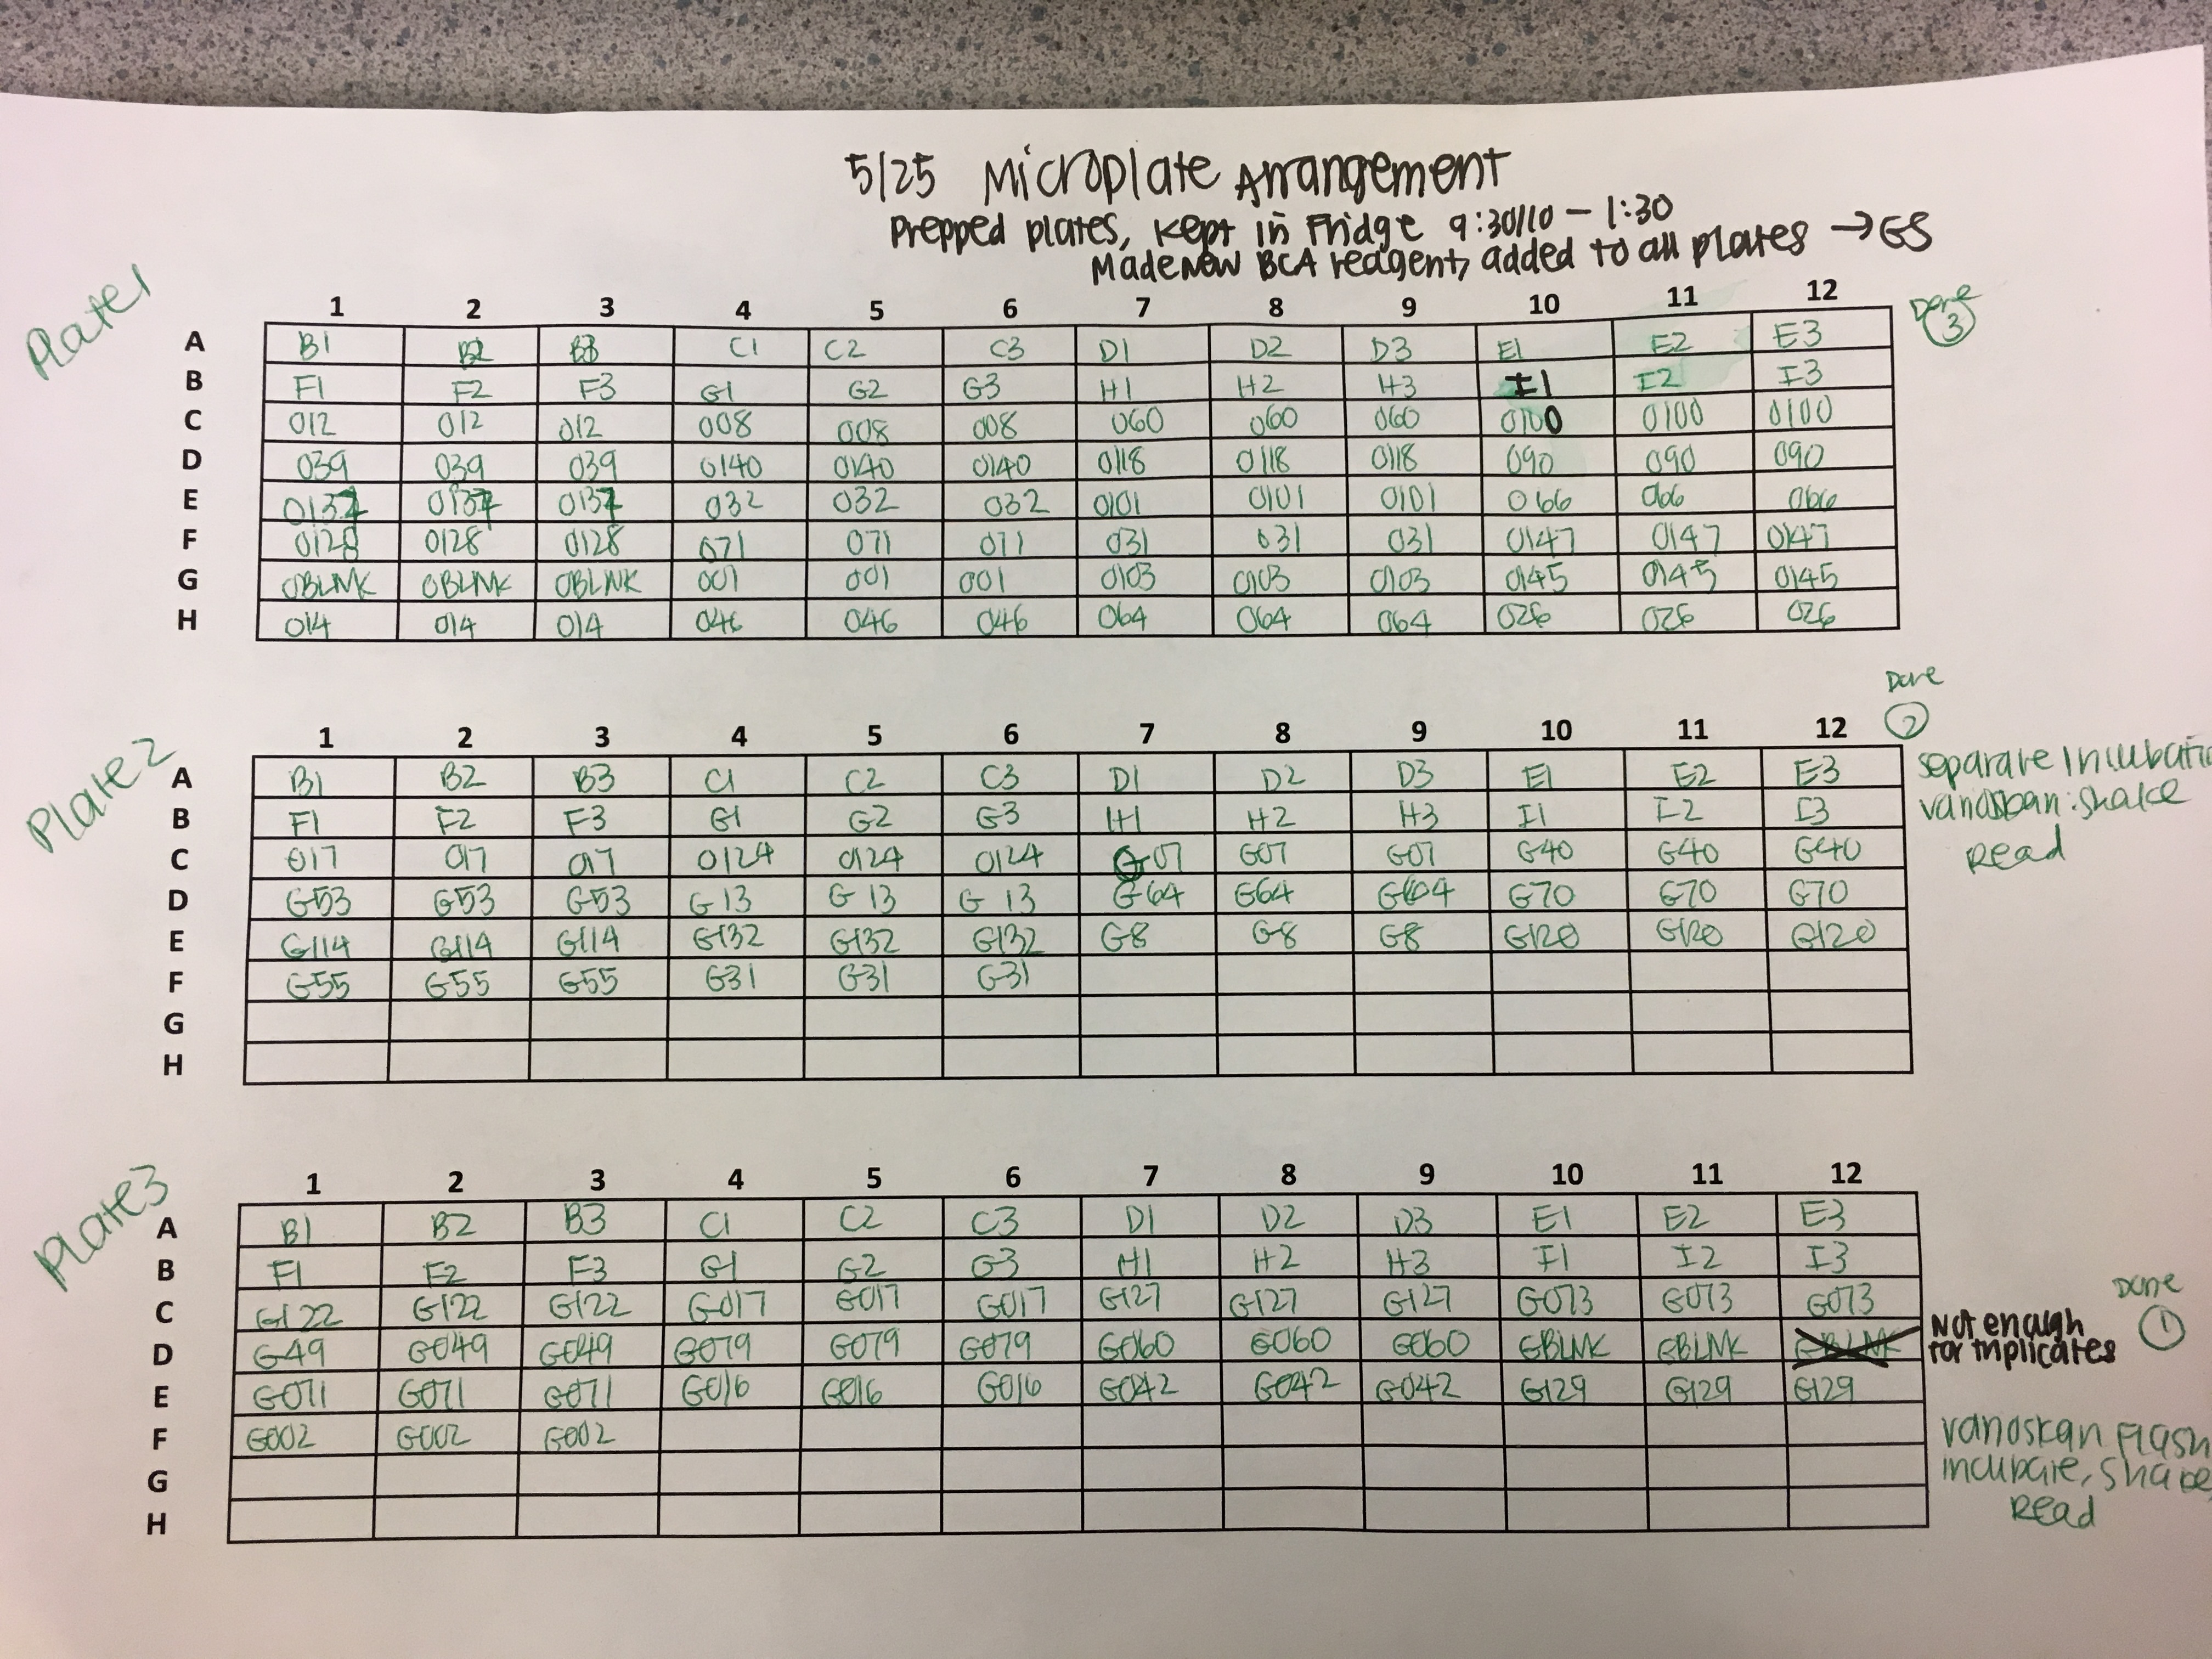 5/25 Microplate Arrangement
Prepped plates, kept in Fridge 9:30/10 - 1:30
Made new BCA reagent, added to all plates → GS
Plate 1
Done
3
1 2 3 4 5 6 7 8 9 10 11 12
A B1 B2 B3 C1 C2 C3 D1 D2 D3 E1 E2 E3
B F1 F2 F3 G1 G2 G3 H1 H2 H3 I1 I2 I3
C 012 012 012 008 008 008 060 060 060 0100 0100 0100
D 039 039 039 0140 0140 0140 0118 0118 0118 090 090 090
E 032 032 032 0101 0101 0101 066 066 066
F 0128 0128 0128 071 071 071 031 031 031 0147 0147 0147
G OBLNK OBLNK OBLNK 001 001 001 0103 0103 0103 0145 0145 0145
H 014 014 014 046 046 046 064 064 064 026 026 026
Plate 2
Done
2
1 2 3 4 5 6 7 8 9 10 11 12
A B1 B2 B3 C1 C2 C3 D1 D2 D3 E1 E2 E3
B F1 F2 F3 G1 G2 G3 H1 H2 H3 I1 I2 I3
C 017 017 017 0124 0124 0124 G07 G07 G07 G40 G40 G40
D G53 G53 G53 G 13 G 13 G 13 G64 G64 G64 G70 G70 G70
E G114 G114 G114 G132 G132 G132 G8 G8 G8 G120 G120 G120
F G55 G55 G55 G31 G31 G31
G
H
separate Incubati
varioskan: shake
Read
Plate 3
1 2 3 4 5 6 7 8 9 10 11 12
A B1 B2 B3 C1 C2 C3 D1 D2 D3 E1 E2 E3
B F1 F2 F3 G1 G2 G3 H1 H2 H3 I1 I2 I3
C G122 G122 G122 G017 G017 G017 G127 G127 G127 G073 G073 G073
D G49 G049 G049 G079 G079 G079 G060 G060 G060 GBLNK GBLNK GBLNK
E G071 G071 G071 G016 G016 G016 G042 G042 G042 G129 G129 G129
F G002 G002 G002
G
H
Done
1
Not enough
for triplicates
varioskan Flash
incubate, shake,
Read